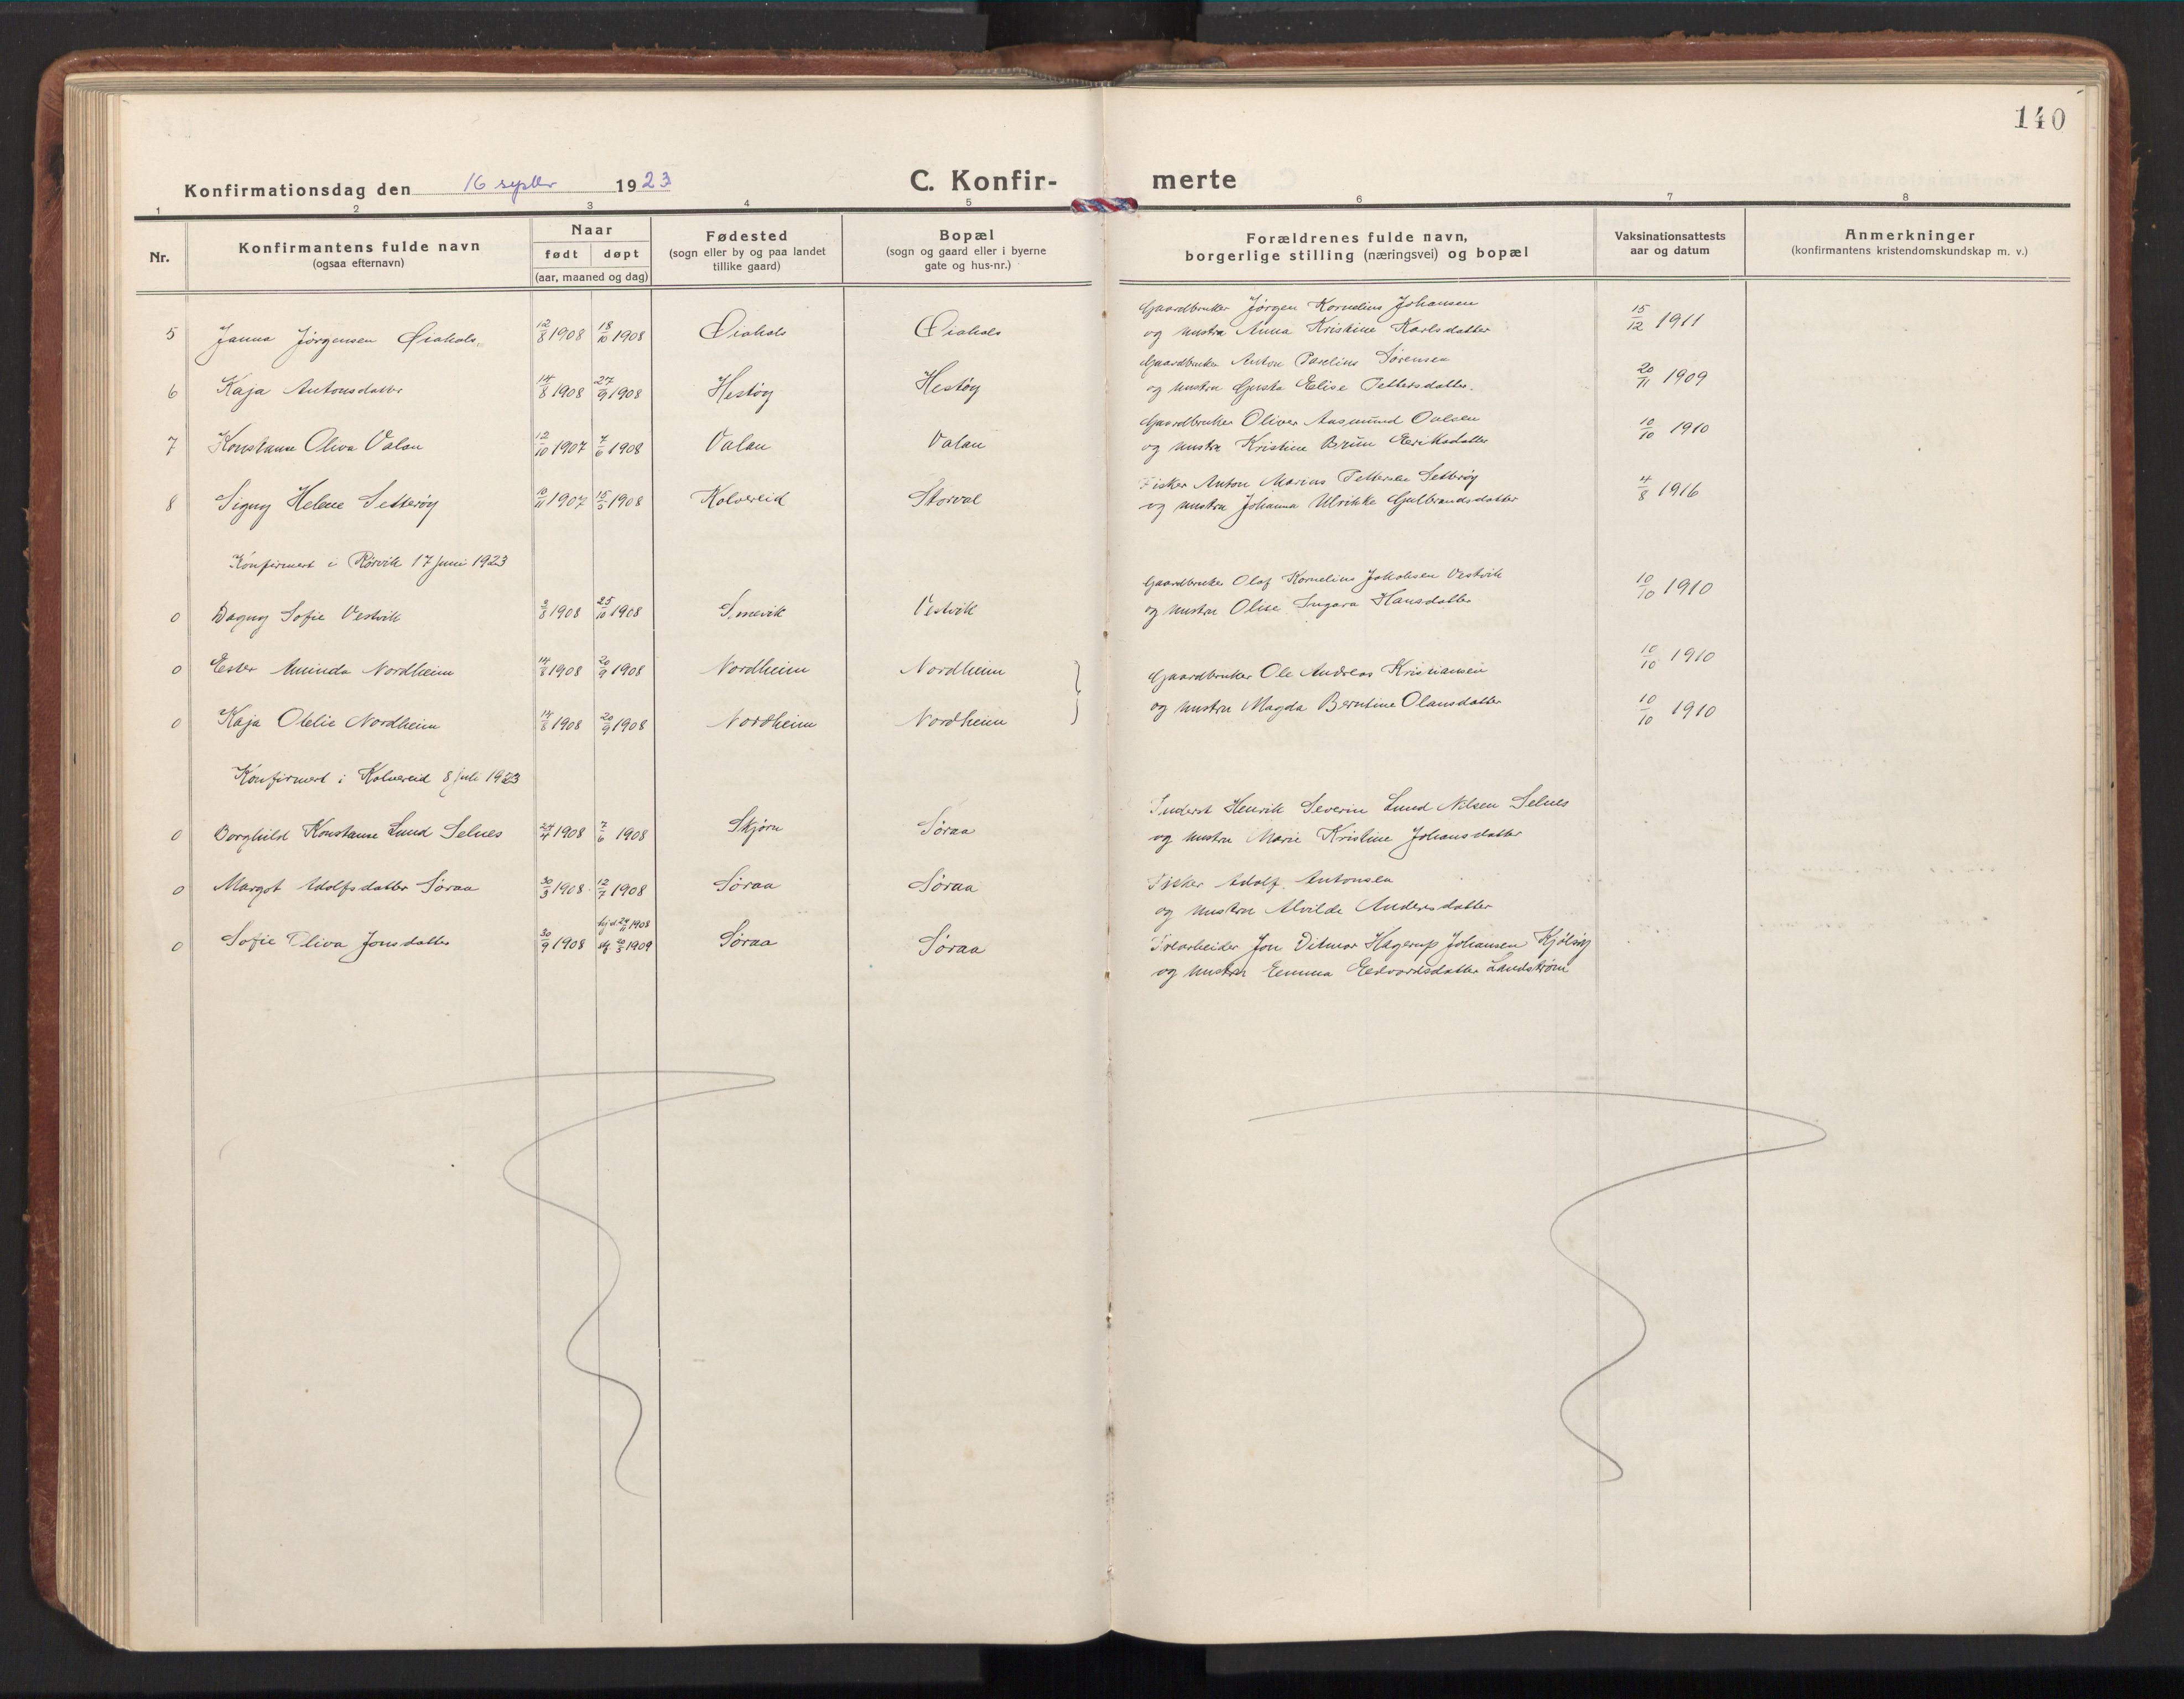 140
Konfirmationsdag den 16 septbr 1923
C. Konfir- merte
1 2 3 4 5 6 7 8
Nr.
Konfirmantens fulde navn
(ogsaa efternavn)
Naar
født døpt
(aar, maaned og dag)
Fødested
(sogn eller by og paa landet
tillike gaard)
Bopæl
(sogn og gaard eller i byerne
gate og hus-nr.)
Forældrenes fulde navn,
borgerlige stilling (næringsvei) og bopæl
Vaksinationsattests
aar og datum
Anmerkninger
(konfirmantens kristendomskundskap m. v.)
Gaardbruker Jørgen Kornelius Johansen
5 Janna Jørgensen Øiahals 12/8 1908 18/10 1908 Øiahals Øiahals og hustru Anna Kristine Karlsdatter 15/12 1911
Gaardbruker Anton Paselius Sørensen
6 Kaja Antonsdatter 14/8 1908 27/9 1908 Hestøy Hestøy og hustru Gusta Elise Pettersdatter. 20/11 1909
Gaardbruker Oliver Aasmund Oalsen
7 Konstanse Oliva Valan 12/10 1907 7/6 1908 Valan Valan og hustru Kristine Brun Eriksdatter 10/10 1910
Fisker Anton Marius Pettersen Setterøy
8 Signy Helene Setterøy 10/11 1907 1908 Kolvereid Storval og hustru Johanna Ulrikke Gulbrandsdatter 4/8 1916
Konfirmert i Rørvik 17 juni 1923
Gaardbruker Olaf Kornelius Jakobsen Vestvik
0 Dagny Sofie Vestvik 2/8 1908 25/10 1908 Simevik Vestvik og hustru Oline Ingara Hansdatter 10/10 1910
0 Ester Aminda Nordheim 14/8 1908 20/9 1908 Nordheim Nordheim Gaardbruker Ole Andreas Kristiansen 10/10 1910
0 Kaja Otelie Nordheim 14/8 1908 20/9 1908 Nordheim Nordheim og hustru Magda Berntine Olausdatter 10/10 1910
Konfirmert i Kolvereid 8 juli 1923
Inderst Henrik Severin Lund Nilsen Selnes
0 Borghild Konstanse Lund Selnes 24/4 1908 7/6 1908 Skjørn Søraa og hustru Marie Kristine Johansdatter
0 Margot Adolfsdatter Søraa 30/3 1908 12/7 1908 Søraa Søraa Fisker Adolf Antonsen
og hustru Alvilde Andersdatter
hj.d. 24/11 1908
0 Sofie Oliva Jonsdatter 30/9 1908 1909 Søraa Søraa Træarbeider Jon Ditmar Hagerup Johansen Kjølsøy
og hustru Emma Edvardsdatter Landstrøm